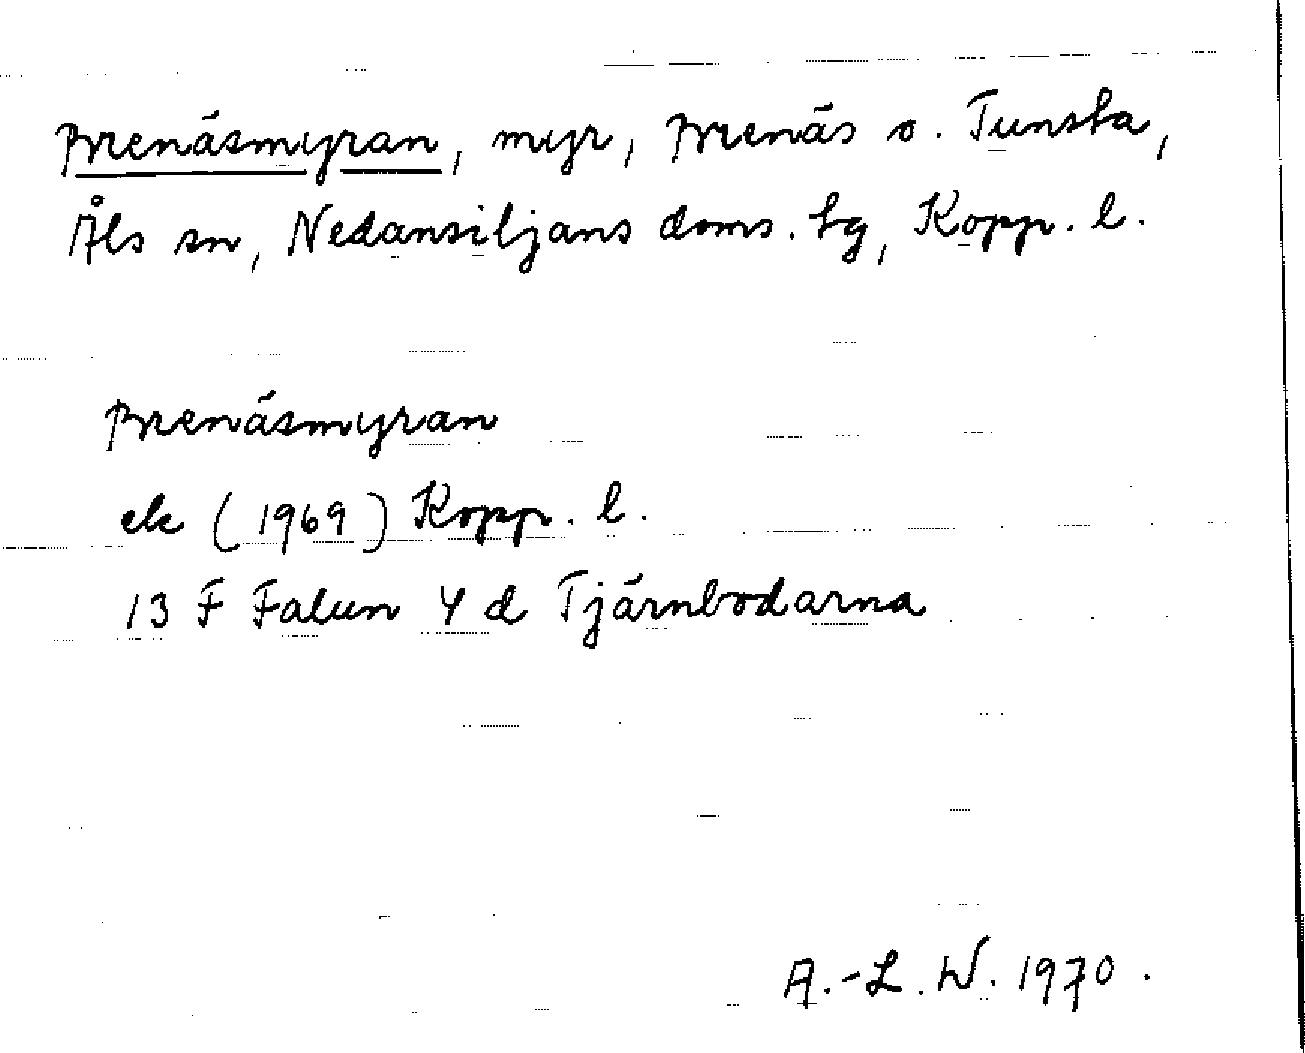 Brenäsmyran, myr, Brenäs o. Tunsta,
Åls sn, Nedansiljans doms. tg, Kopp. l.
Brenäsmyran
ek (1969) Kopp. l.
13 F Falun 4 d Tjärnbodarna
A.-L. W. 1970.